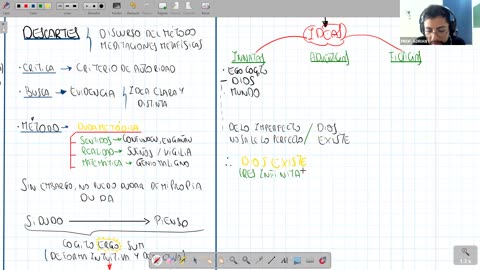 DESCARTES
DISCURSO DEL MÉTODO
MEDITACIONES METAFÍSICAS
· CRÍTICA → CRITERIO DE AUTORIDAD
· BUSCA → EVIDENCIA
IDEA CLARA Y
DISTINTA
· MÉTODO → DUDA METÓDICA
SENTIDOS →
REALIDAD → SUEÑOS / VIGILIA
MATEMÁTICA → GENIO MALIGNO
SIN EMBARGO, NO PUEDO DUDAR DE MI PROPIA
DUDA
SI DUDO → PIENSO
COGITO ERGO SUM
DE FORMA INTUITIVA Y
IDEAS
INNATAS
ADVENTICIAS
FICTICIAS
· EGO COGITO
- DIOS
· MUNDO
DE LO IMPERFECTO
NO SALE LO PERFECTO
DIOS
EXISTE
∴ DIOS EXISTE
RES INFINITA